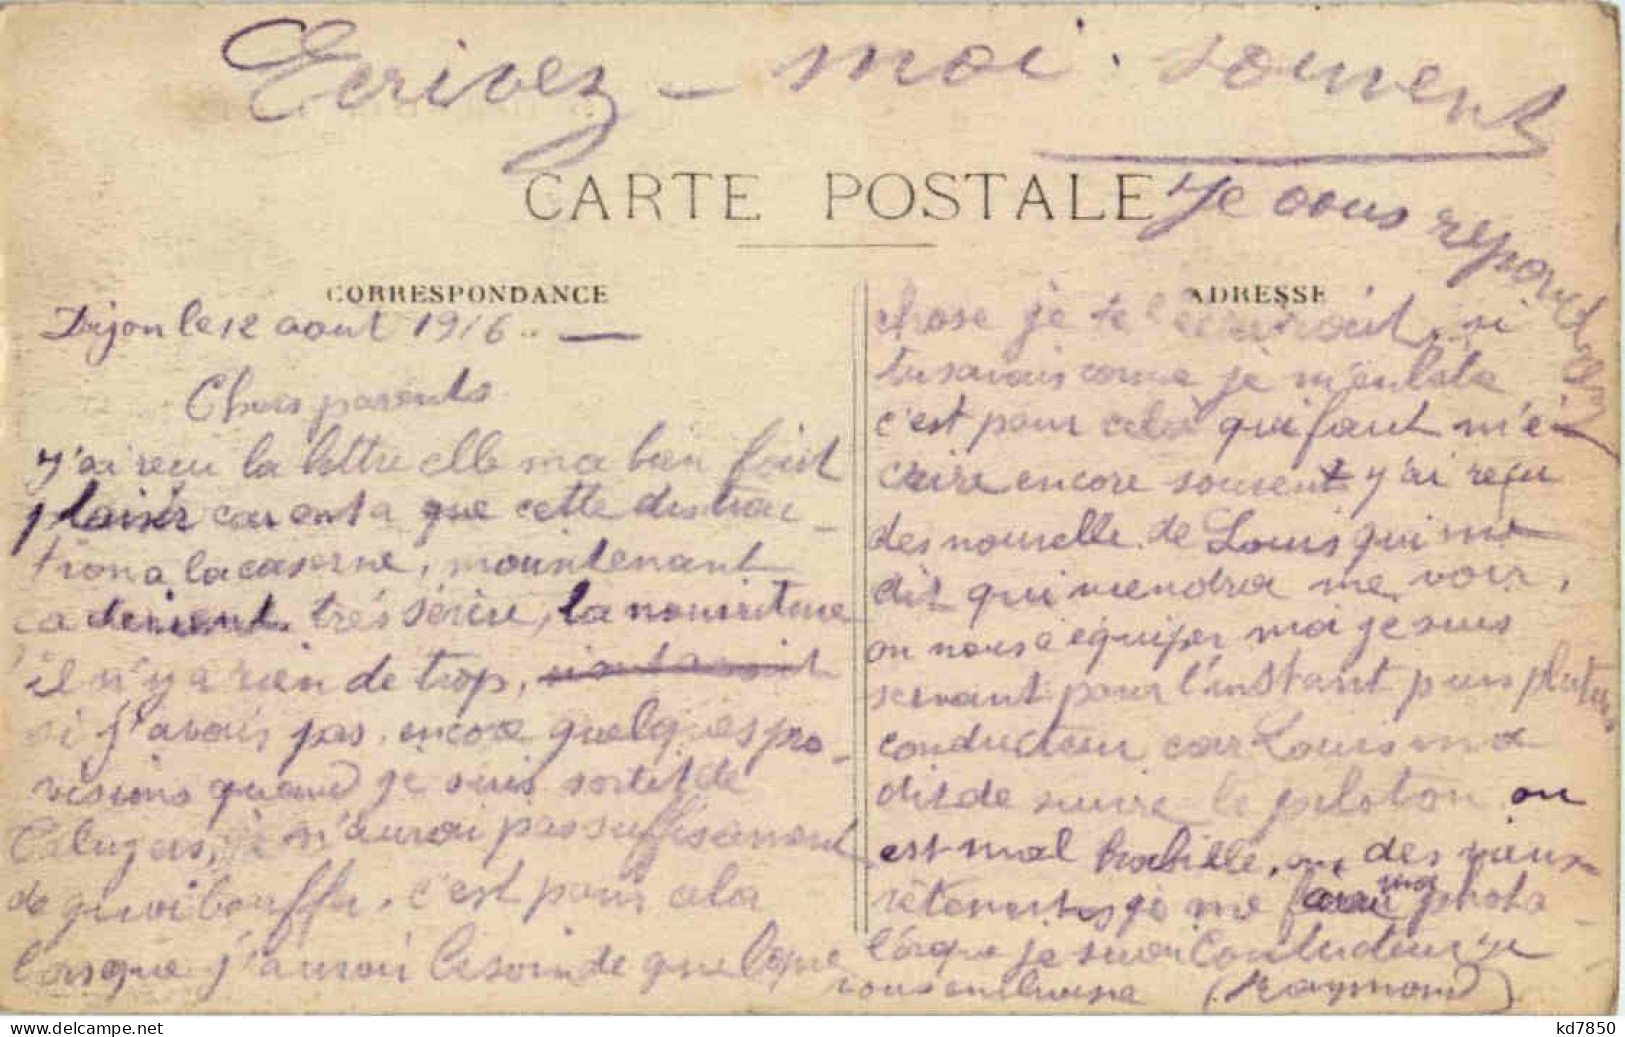 Ecrivez - moi souvent
CARTE POSTALE
Je vous repond
CORRESPONDANCE
Dijon le 12 aout 1916..
Chers parents
J'ai reçu la lettre elle ma bien fait
plaisir car ont a que cette distrac-
tion a la caserne, maintenant
ca devient très sérieu, la nourriture
il n'y a rien de trop,
si j'avais pas encore quelques pro-
visions quand je suis sortit de
n'aurai pas suffisament
de quoi bouffer, c'est pour cela
lorsque j'aurai besoin de quelque
ADRESSE
chose je te l'ecrirait, si
tu savais comme je m'enbete
c'est pour cela qui faut m'é-
crire encore souvent j'ai reçu
des nouvelle de Louis qui me
dit qui viendra me voir,
on nous a équiper moi je suis
servant pour l'instant puis plutard
conducteur car Louis m'a
dit de suivre le peloton on
est mal habille, on des vieux
vetements je me ferai ma photo
l'orsque je serai Conducteur Je
vous embrasse (Raymond)
kd7850